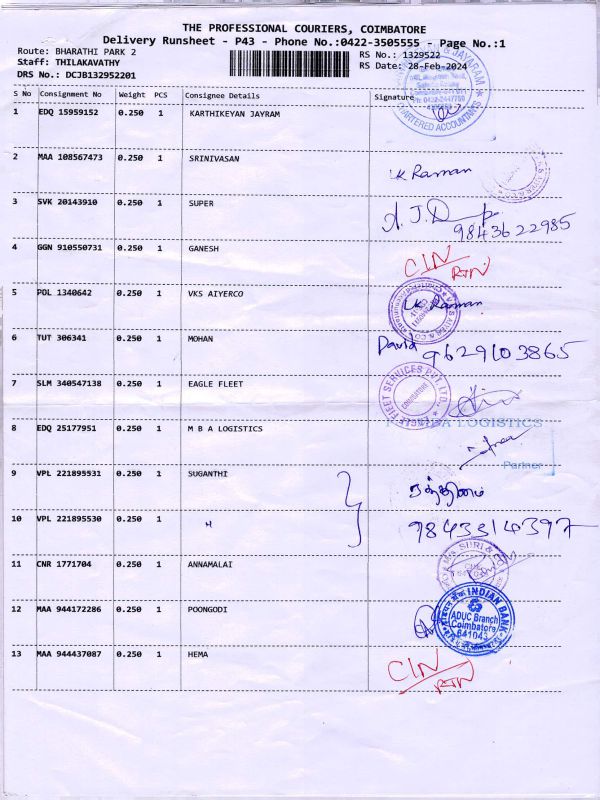 THE PROFESSIONAL COURIERS, COIMBATORE
Delivery Runsheet - P43 - Phone No.:0422-3505555 - Page No.:1
Route: BHARATHI PARK 2
RS No.: 1329522
Staff: THILAKAVATHY
RS Date: 28-Feb-2024
DRS No.: DCJB132952201
S No Consignment No Weight PCS Consignee Details Signature
1 EDQ 15959152 0.250 1 KARTHIKEYAN JAYRAM
JAYARAM
CHARTERED ACCOUNTANTS
2 MAA 108567473 0.250 1 SRINIVASAN
UK Raman
3 SVK 20143910 0.250 1 SUPER
9843622985
4 GGN 910550731 0.250 1 GANESH CIN/RTN
5 POL 1340642 0.250 1 VKS AIYERCO UK Raman
6 TUT 306341 0.250 1 MOHAN David 9629103865
7 SLM 340547138 0.250 1 EAGLE FLEET
EAGLE FLEET SERVICES PVT. LTD.
COIMBATORE
8 EDQ 25177951 0.250 1 M B A LOGISTICS
MBA LOGISTICS
Partner
9 VPL 221895531 0.250 1 SUGANTHI
10 VPL 221895530 0.250 1 " 9843314397
11 CNR 1771704 0.250 1 ANNAMALAI
SURI &
12 MAA 944172286 0.250 1 POONGODI
इंडियन बैंक INDIAN BANK
ADUC Branch
Coimbatore
641043
13 MAA 944437087 0.250 1 HEMA CIN/RTN